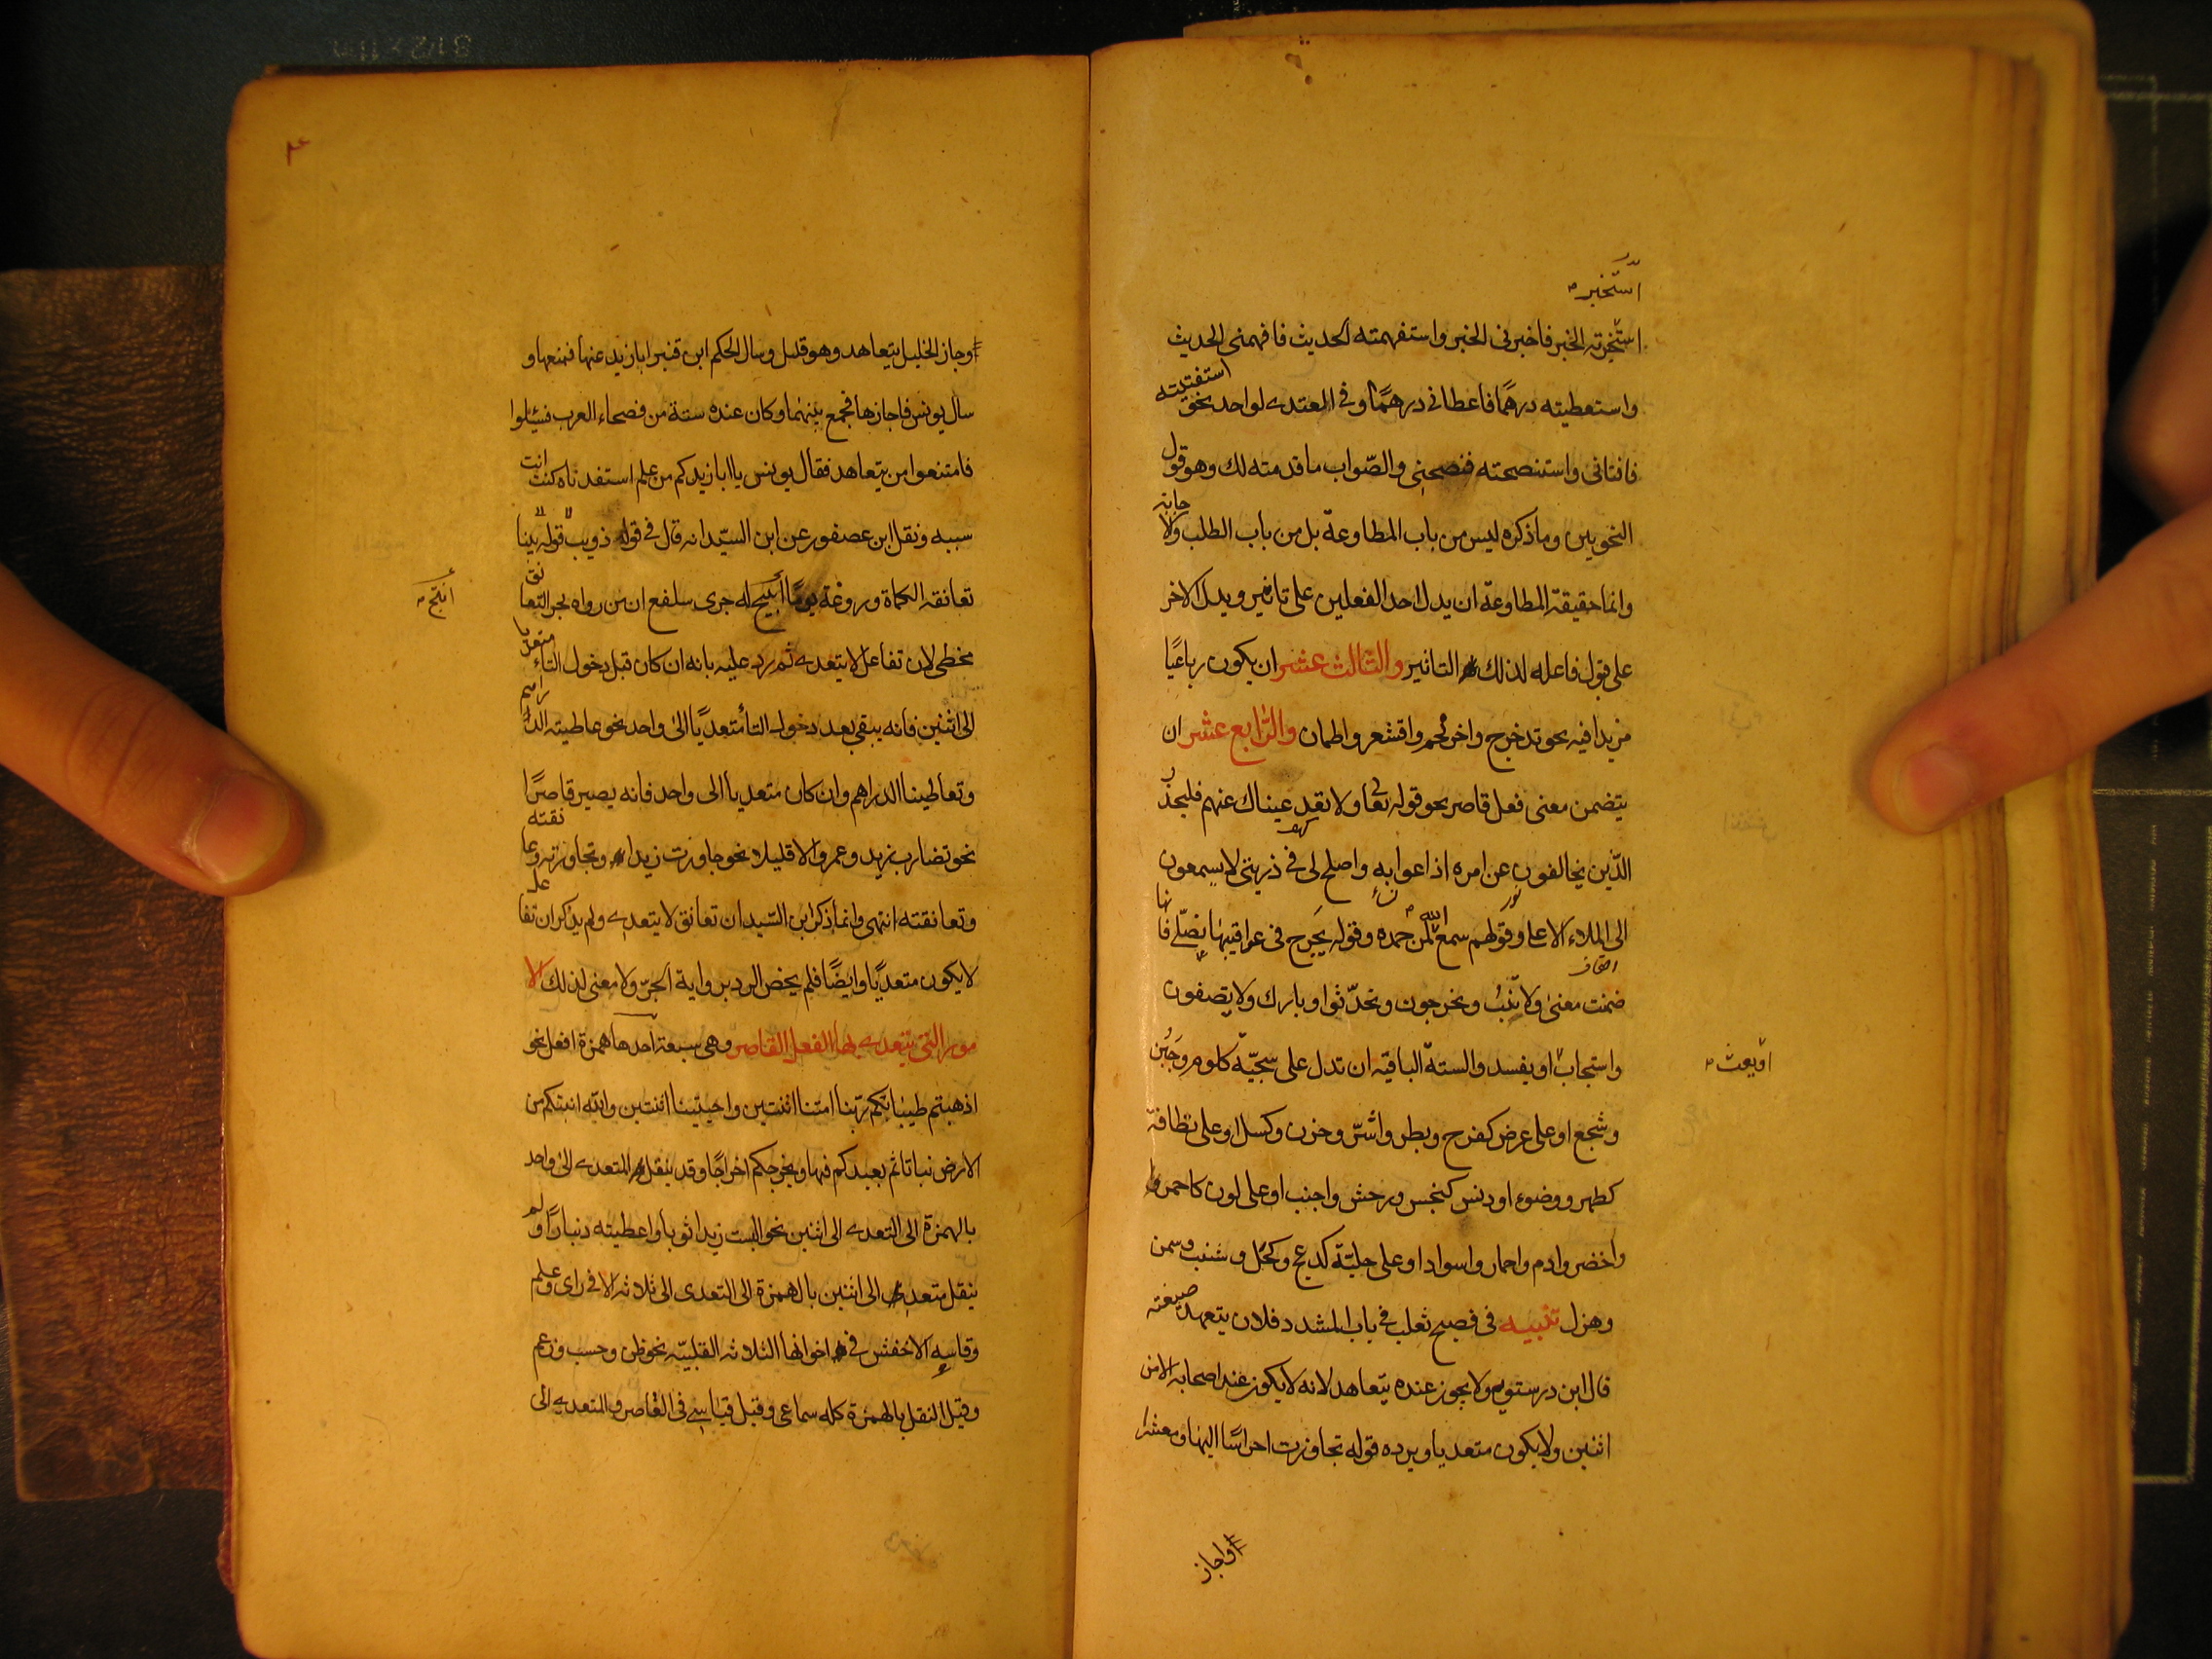 استخبر
استخبرته الخبر فاخبرنی الخبر واستفهمته الحدیث فافهمنی الحدیث
واستعطیته درهمًا فاعطانی درهمًا وفی المعتدی لواحد نحو استفتیته
فافتانی واستنصحته فنصحنی والصّواب ما قدمته لك وهو قول
النحویین وما ذکره لیس من باب المطاوعة بل من باب الطلب والاجابة
وانما حقیقة المطاوعة ان یدل احد الفعلین علی تاثیر ویدل الاخر
علی قبول فاعله لذلك التاثیر والثالث عشر ان یکون رباعیًا
مزیدا فیه نحو تدخرج واخرنجم واقشعر واطمان والرّابع عشر ان
یتضمن معنی فعل قاصر نحو قوله تعا ولا تعد عیناك عنهم فلیحذر
الذین یخالفون عن امره اذاعوا به واصلح لی فی ذریتی لا یسمعون
الی الملاء الاعلا وقولهم سمع الله لمن حمده وقوله یجرح فی عراقیبها نصلی فانها
ضمنت معنی ولا تنب ویخرجون وتحدّثوا وبارك ولا یصغون
واستجاب او یفسد والستة الباقیة ان تدل علی سجیّة کلوم وجبن
او یعث
وشجع او علی عرض کفرح وبطر واشر وحزن وکسل او علی نظافة
کطهر ووضوء او دنس کنجس ورجس واجنب او علی لون کاحمر و
واخضر وادم واحمار واسواد او علی حلیّة کدعج وکحل وشنب وسمن
وهزل تنبیه فی فصیح ثعلب فی باب المشدد فلان یتعهد ضیعته
قال ابن درستویه ولا یجوز عنده یتعاهد لانه لا یکون عند اصحابه الا من
اثنین ولا یکون متعدیا ویرده قوله تجاوزت احراسًا الیها ومعشرا
واجاز
وجاز الخلیل یتعاهد وهو قلیل وسال الحکم ابن قنبر ابا زید عنها فمنعها و
سال یونس فاجازها فجمع بینهما وکان عنده ستة من فصحاء العرب فسئلوا
فامتنعوا من یتعاهد فقال یونس یا ابا زید کم من علم استفدناه کنت انت
سببه ونقل ابن عصفور عن ابن السیّد انه قال فی قوله ذویب قوله بینا
تعانقه الکماة وروغة یومًا اتیح له جری سلفع ان من رواه بجر التعانق
اتیح
مخطی لان تفاعل لا یتعدی ثم رد علیه بانه ان کان قبل دخول التاء متعدیا
الی اثنین فانه یبقی بعد دخول التا متعدیًا الی واحد نحو عاطیته الدراهم
وتعاطینا الدراهم وان کان متعدیا الی واحد فانه یصیر قاصرًا
نحو تضارب زید وعمرو الا قلیلا نحو جاوزت زیدا وتجاوزته وعانقته
وتعانقته انتهی وانما ذکر ابن السّید ان تعانق لا یتعدی ولم یذکر ان تفاعل
لا یکون متعدیًا وایضًا فلم یخص الرد بروایة الجرّ ولا معنی لذلك الا
مور التی یتعدی بها الفعل القاصر وهی سبعة احدها همزة افعل نحو
اذهبتم طیباتکم ربّنا امتنا اثنتین واحییتنا اثنتین والله انبتکم من
الارض نباتا ثم یعیدکم فیها ویخرجکم اخراجًا وقد ینقل المتعدی الی واحد
بالهمزة الی التعدی الی اثنین نحو البست زیدا ثوبا واعطیته دینارًا ولم
ینقل متعد الی اثنین بالهمزة الی التعدی الی ثلاثه الا فی رای وعلم
وقاسه الاخفش فی اخواتها الثلاثه القلبیّه نحو ظن وحسب وزعم
وقیل النقل بالهمزة کله سماعی وقیل قیاسی فی القاصر والمتعدی الی